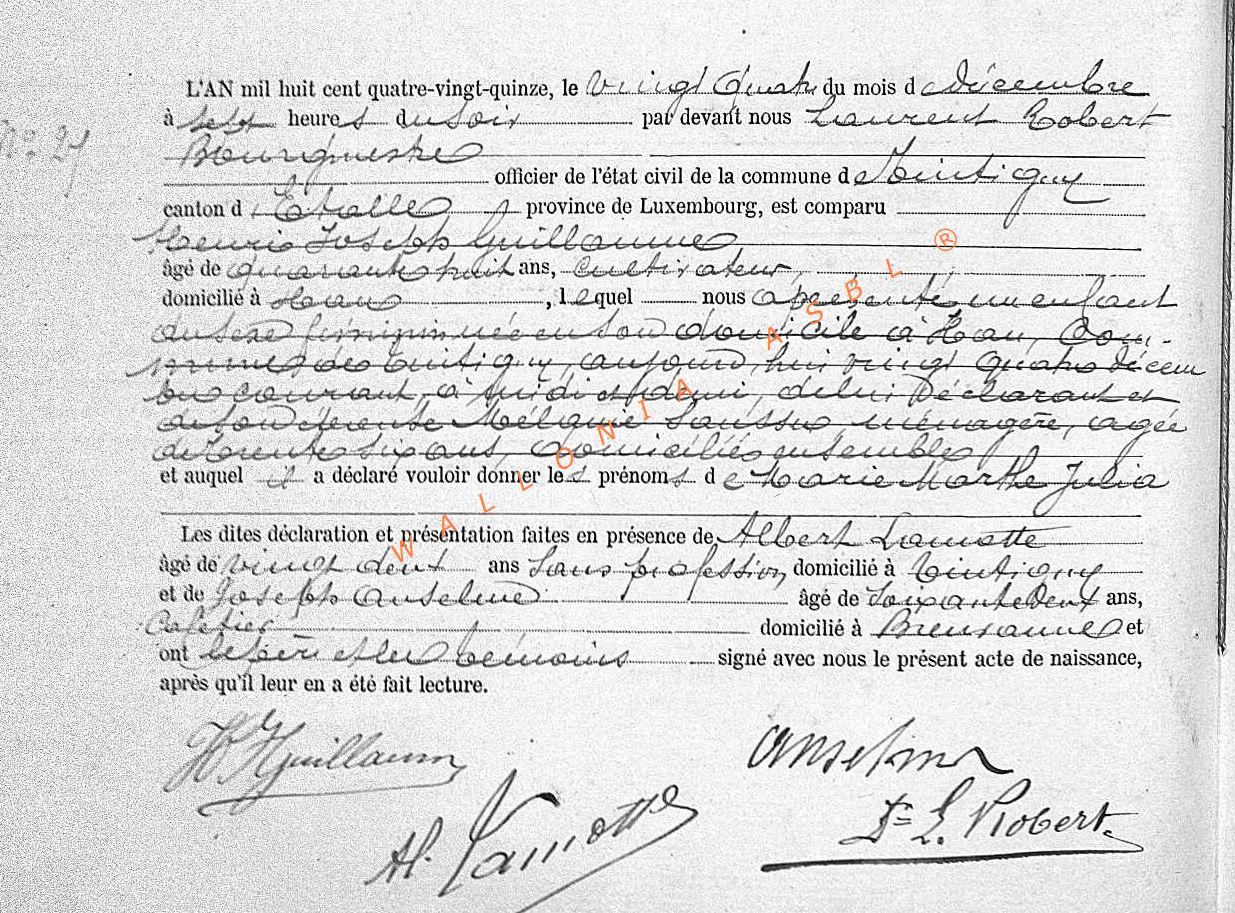 L'AN mil huit cent quatre-vingt-quinze, le vingt quatre du mois de décembre
à sept heures du soir par devant nous Laurent Robert
N° 27
Bourgmestre
officier de l'état civil de la commune de Tintigny
canton d'Etalle province de Luxembourg, est comparu
Henri Joseph Guillaume
âgé de quarante huit ans, cultivateur,
domicilié à Han, lequel nous a présenté un enfant
du sexe féminin née en son domicile à Han, Com-
mune de Tintigny, aujourd'hui vingt quatre décem
bre courant, à midi et demi, de lui Déclarant et
de son épouse Mélanie, ménagère, agée
de trente six ans, domiciliés ensemble
et auquel il a déclaré vouloir donner les prénoms de Marie Marthe Julia
Les dites déclaration et présentation faites en présence de Albert Lamotte
âgé de vingt deux ans Sans profession, domicilié à Tintigny
et de Joseph Anselme âgé de Soixante Deux ans,
Cafetier domicilié à et
ont le père et les témoins signé avec nous le présent acte de naissance,
après qu'il leur en a été fait lecture.
H J Guillaume
Anselme
Al. Lamotte
Dr L. Robert.
WALLONIA ASBL ®